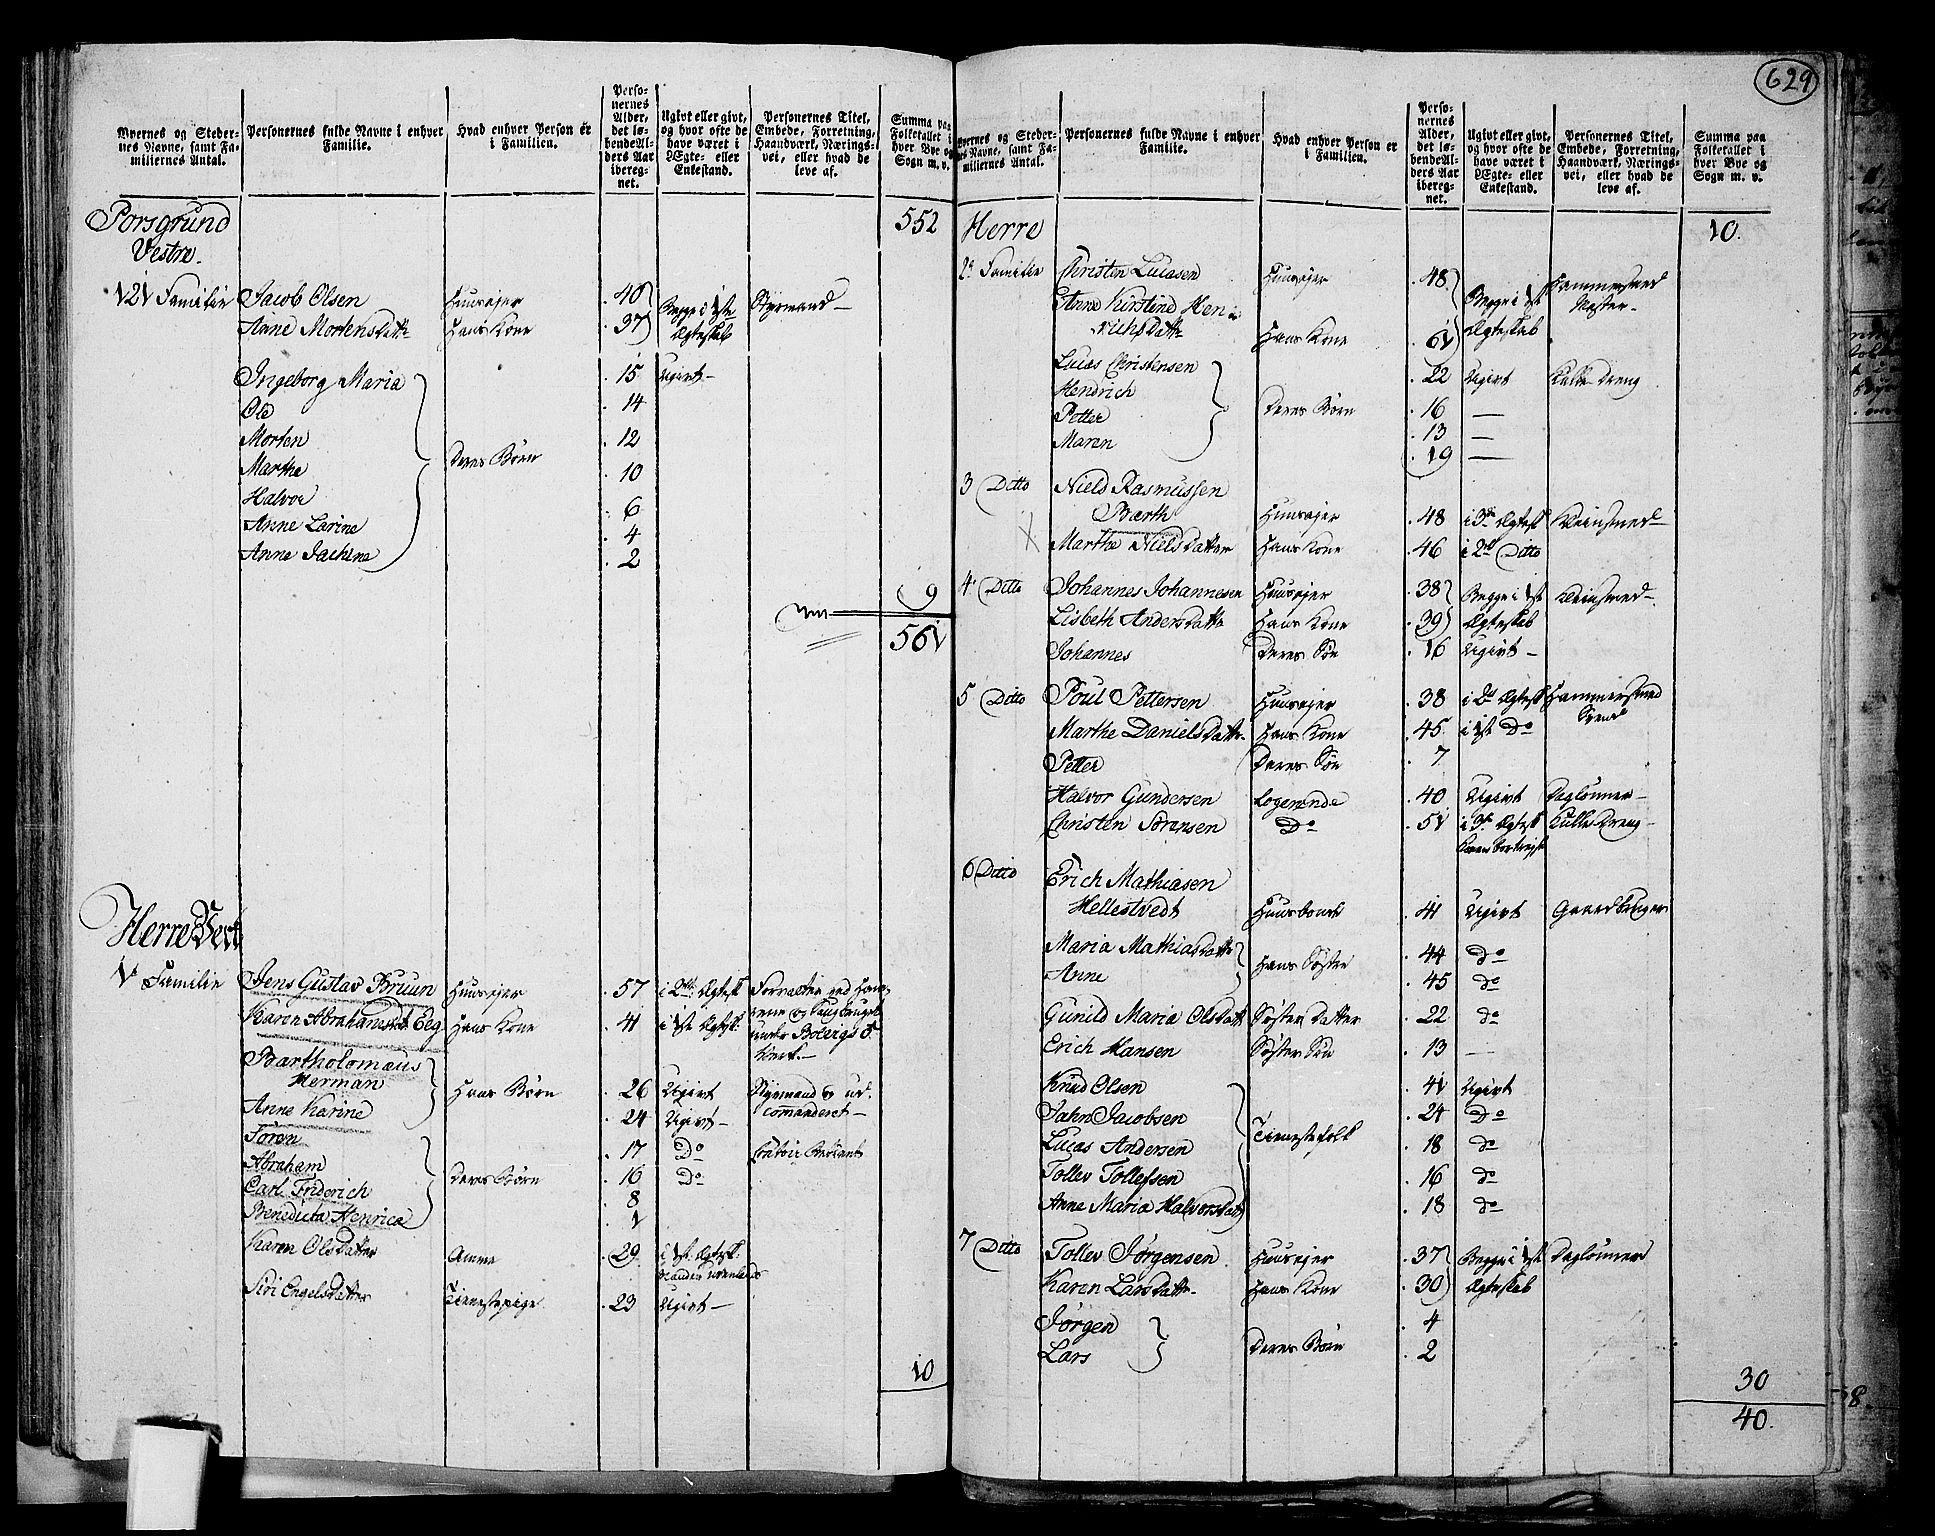 629
Byernes og Steder-
nes Navne, samt Fa-
miliernes Antal.
Personernes fulde Navne i enhver
Familie.
Hvad enhver Person er
i Familien.
Perso-
nernes
Alder,
det lø-
bende Al-
ders Aar
ibereg-
net.
Ugivt eller givt,
og hvor ofte de
have været i
Ægte- eller
Enkestand.
Personernes Titel,
Embede, Forretning,
Haandværk, Nærings-
vei, eller hvad de
leve af.
Summa paa
Folketallet i
hver Bye og
Sogn m. v.
Porsgrund 552
Vestre.
121 Familie Jacob Olsen Huusejer 40 Begge i 1ste Styrmand
Anne Mortensdattr Hans Kone 37 Ægteskab
Ingeborg Maria 15 Ugivt
Ole 14
Morten 12
Marthe Deres Børn 10
Halvor 6
Anne Larine 4
Anne Jachine 2
9
561
Herre Verk
1 Familie Jens Gustav Bruun Huusejer 57 i 2det Ægtesk Forvalter ved Ham-
Karen Abrahamsdt Eeg Hans Kone 41 i 1st Ægtsk. merne og Saugbruget
under Bolvigs
Værk.
Bartholomæus
Herman Hans Børn 26 Ugivt Styrmand og ud-
Anne Karine 24 Ugivt commanderet
Søren 17 Do Contoir Betient
Abraham Deres Børn 16 Do
Carl Friderich 8
Benedicta Henrica 1
Karen Olsdatter Amme 29 i 1st Ægtsk.
Manden udenlands
Siri Engelsdatter Tienestepige 23 Ugivt
10
Byernes og Steder-
nes Navne, samt Fa-
miliernes Antal.
Personernes fulde Navne i enhver
Familie.
Hvad enhver Person er
i Familien.
Perso-
nernes
Alder,
det lø-
bende Al-
ders Aar
ibereg-
net.
Ugivt eller givt,
og hvor ofte de
have været i
Ægte- eller
Enkestand.
Personernes Titel,
Embede, Forretning,
Haandværk, Nærings-
vei, eller hvad de
leve af.
Summa paa
Folketallet i
hver Bye og
Sogn m. v.
Herre 10.
2 Familie Christen Lucasen Huusejer 48 Begge i 1st Hammersmed
Anne Kirstine Hen- Mester
richsdattr Hans Kone 61 Ægteskab
Lucas Christensen 22 Ugivt Kulle Dreng
Hendrich Deres Børn 16 —
Petter 13 —
Maren 19 —
3 Ditto Niels Rasmussen
Barth Huusejer 48 i 3de Ægtesk Kleinsmed
Marthe Nielsdatter Hans Kone 46 i 2det Ditto
4 Ditto Johannes Johannesen Huusejer 38 Begge i 1st Kleinsmed
Lisbeth Andersdattr Hans Kone 39 Ægteskab
Johannes Deres Søn 16 Ugivt
5 Ditto Poul Pettersen Huusejer 38 i 2det Ægtesk Hammersmed
Svend
Marthe Danielsdattr Hans Kone 45 i 1st Do
Petter Deres Søn 7
Halvor Gundersen Logerende 40 Ugivt Daglønner
Christen Sørensen Do 51 i 3de Ægtesk Kulle Dreng
Konen bortrejst
6 Ditto Erich Mathiasen
Hellestvedt Huusbond 41 Ugivt Gaardbruger
Maria Mathiasdattr Hans Søstre 44 do
Anne 45 do
Gunild Maria Olsdattr Søster Datter 22 do
Erich Hansen Søster Søn 13 —
Knud Olsen 41 Ugivt
Jahn Jacobsen 24 Do
Lucas Andersen Tienestefolk 18 do
Tollev Tollefsen 16 do
Anne Maria Halvorsdat 18 do
7 Ditto Tollev Jørgensen Huusejer 37 Begge i 1st Daglønner
Karen Larsdattr Hans Kone 30 Ægteskab
Jørgen 4
Lars Deres Børn 2
30
40.